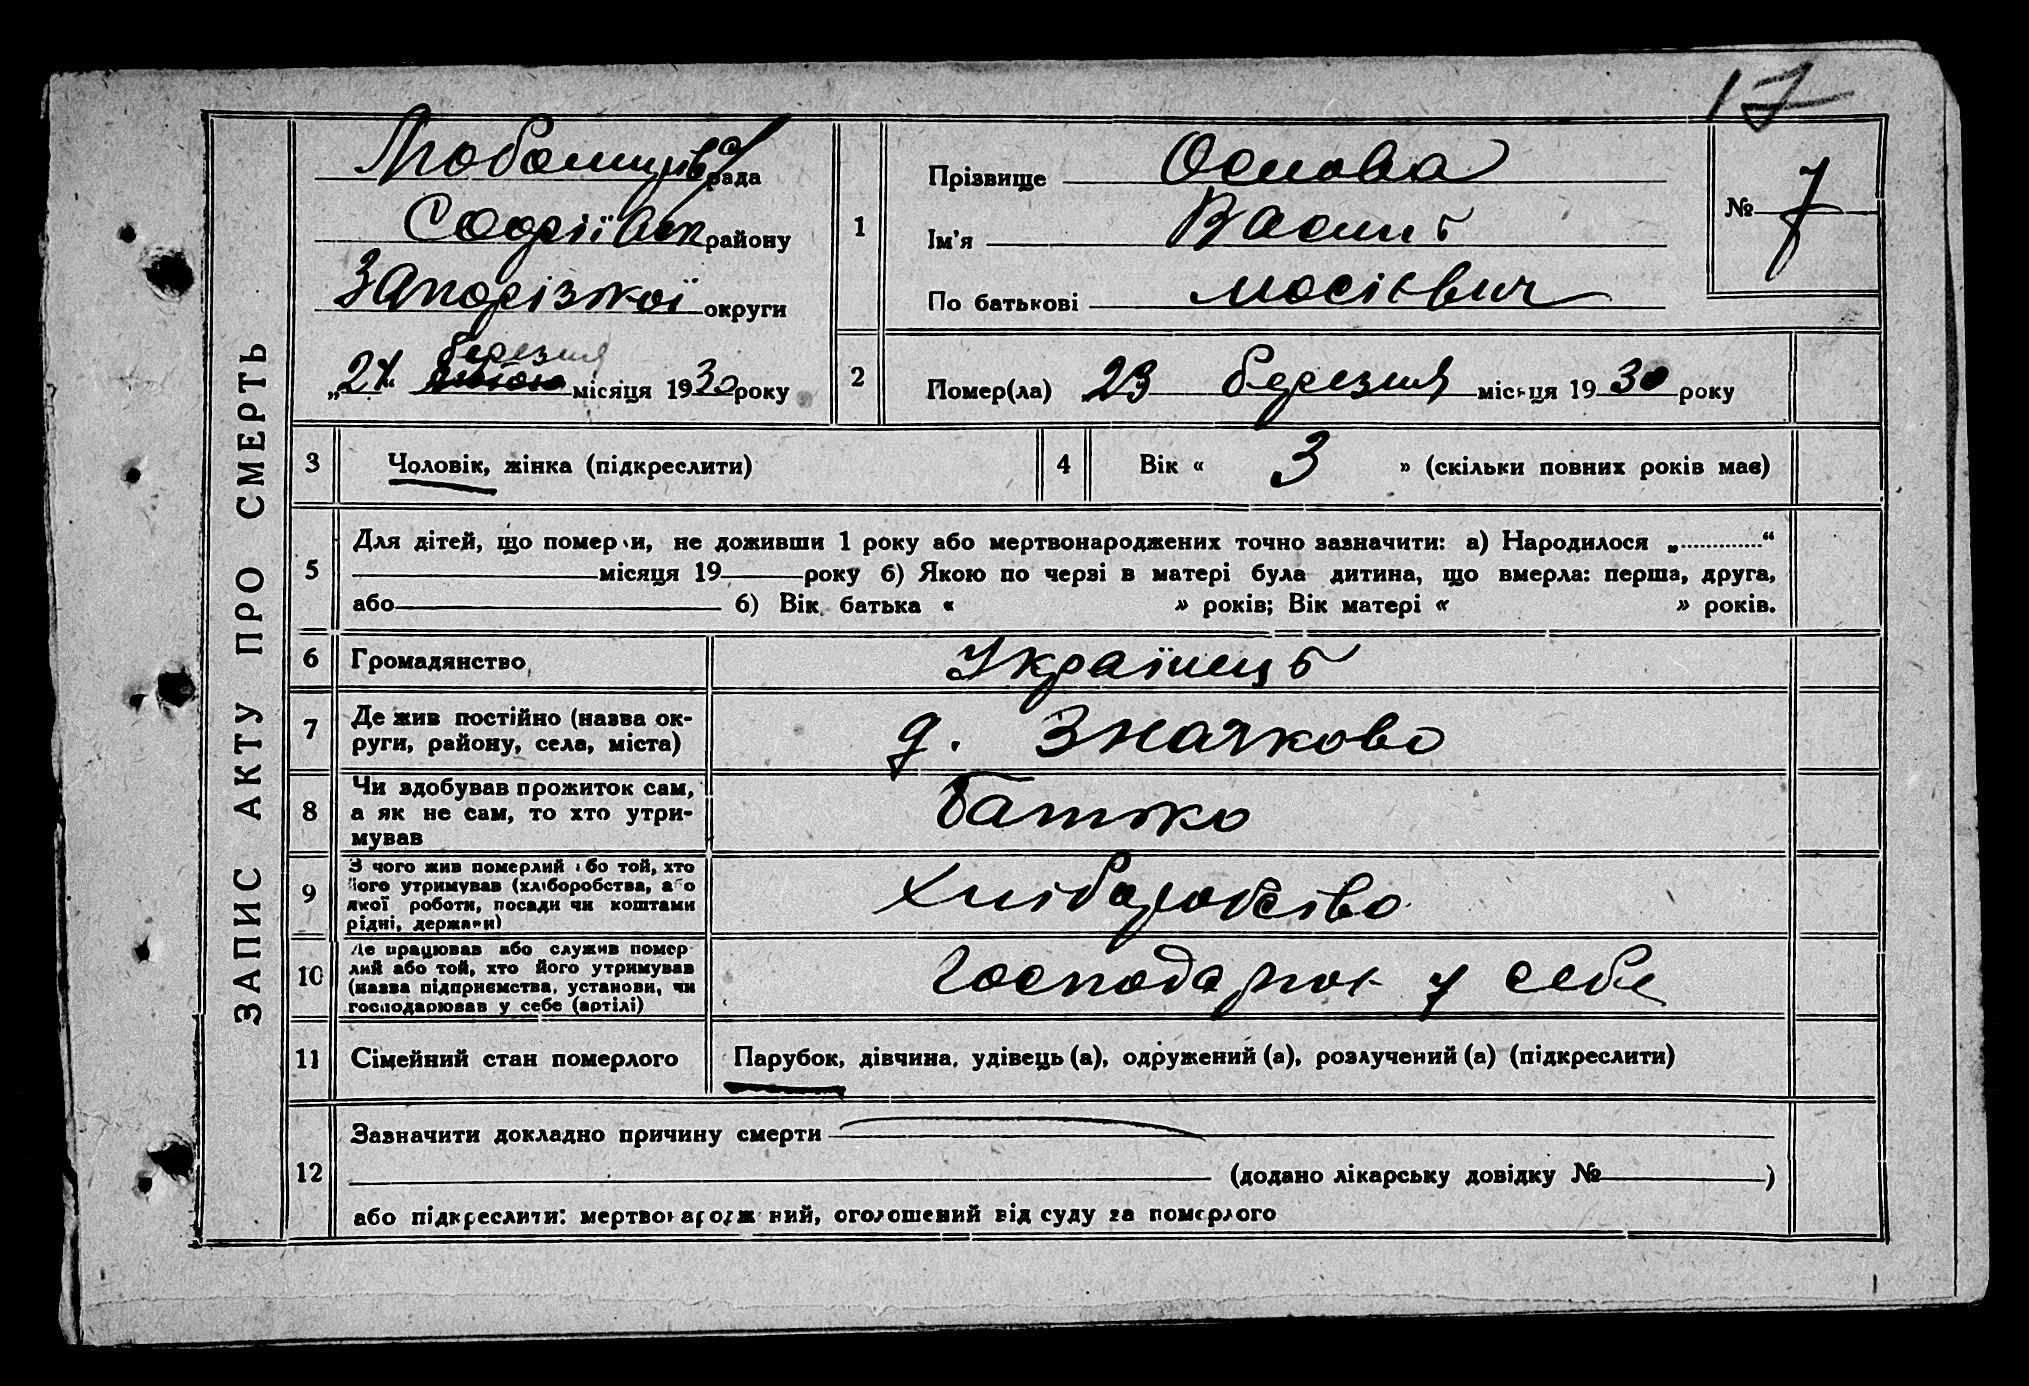 17
ЗАПИС АКТУ ПРО СМЕРТЬ
рада
Софіївськ району
Запорізької округи
березня
„24“ місяця 1930 року
1
Прізвище Основа
Ім'я Василь
По батькові Мосієвич
№ 7
2
Помер(ла) 23 березня місяця 1930 року
3 Чоловік, жінка (підкреслити)
4 Вік « 3 » (скільки повних років має)
5
Для дітей, що померли, не доживши 1 року або мертвонароджених точно зазначити: а) Народилося „............“
місяця 19 року б) Якою по черзі в матері була дитина, що вмерла: перша, друга,
або б) Вік батька « » років; Вік матері « » років.
6 Громадянство Українець
7 Де жив постійно (назва ок-
руги, району, села, міста)
д. Значково
8 Чи здобував прожиток сам,
а як не сам, то хто утри-
мував
Батько
9 З чого жив померлий або той, хто
його утримував (хліборобства, або
якої роботи, посади чи коштами
рідні, держави)
Хліборобство
10 Де працював або служив помер
лий або той, хто його утримував
(назва підприємства, установи, чи
господарював у себе (артілі)
Господарюв у себе
11 Сімейний стан померлого Парубок, дівчина, удівець (а), одружений (а), розлучений (а) (підкреслити)
12
Зазначити докладно причину смерти
(додано лікарську довідку № )
або підкреслити: мертвонароджений, оголошений від суду за померлого